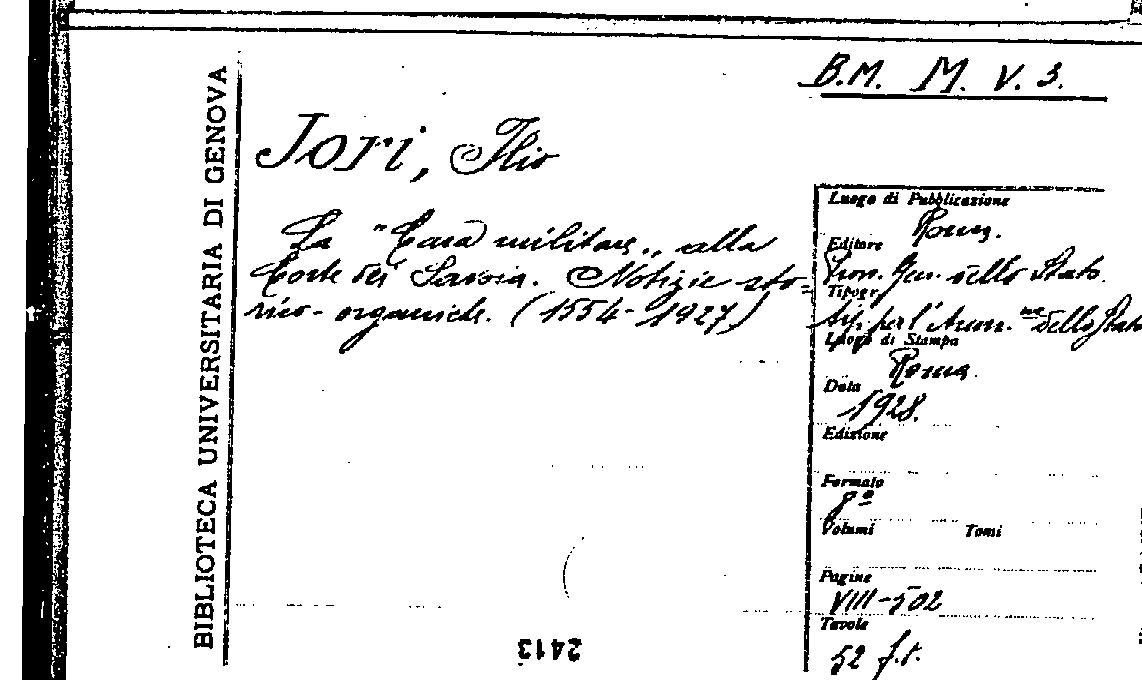 B.M. M. V. 3.
BIBLIOTECA UNIVERSITARIA DI GENOVA
Jori, Ilio
La "Casa militare„ alla
Corte dei Savoia. Notizie sto=
rico-organiche. (1554-1927)
Luogo di Pubblicazione
Roma.
Editore
Provv. Gen. dello Stato.
Tipogr.
Tip. per l'Amm.ne dello Stato
Luogo di Stampa
Roma.
Data
1928.
Edizione
Formato
8º
Volumi Tomi
Pagine
VIII-502
Tavole
52 f.t.
2413